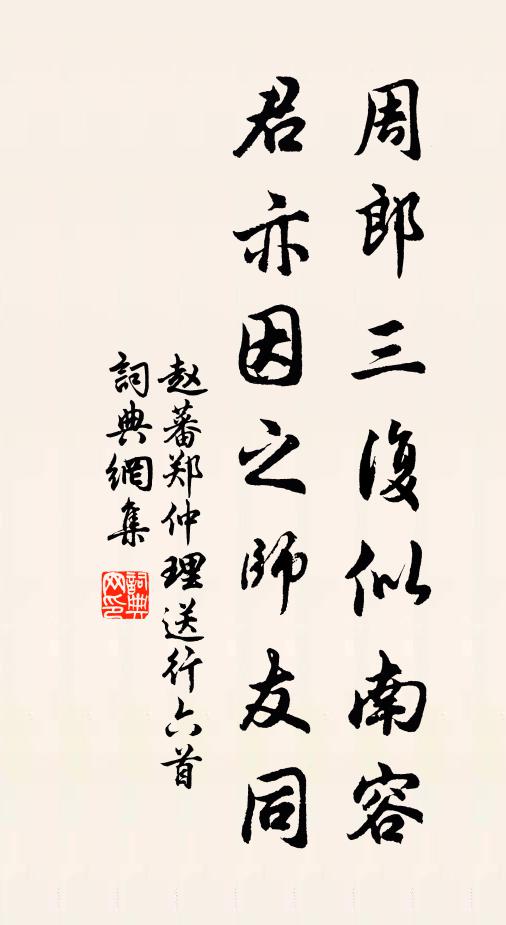 周郎三復似南容
君亦因之師友同
赵蕃郑仲理送行六首
詞典網集
詞典网印